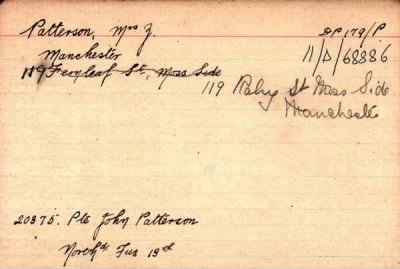 Patterson, Mrs J.
SP 179/P
Manchester
11/D/68886
119 Fernleaf St, Moss Side
119 Raby St Moss Side
Manchester
20375. Pte John Patterson
North'd Fus 13th